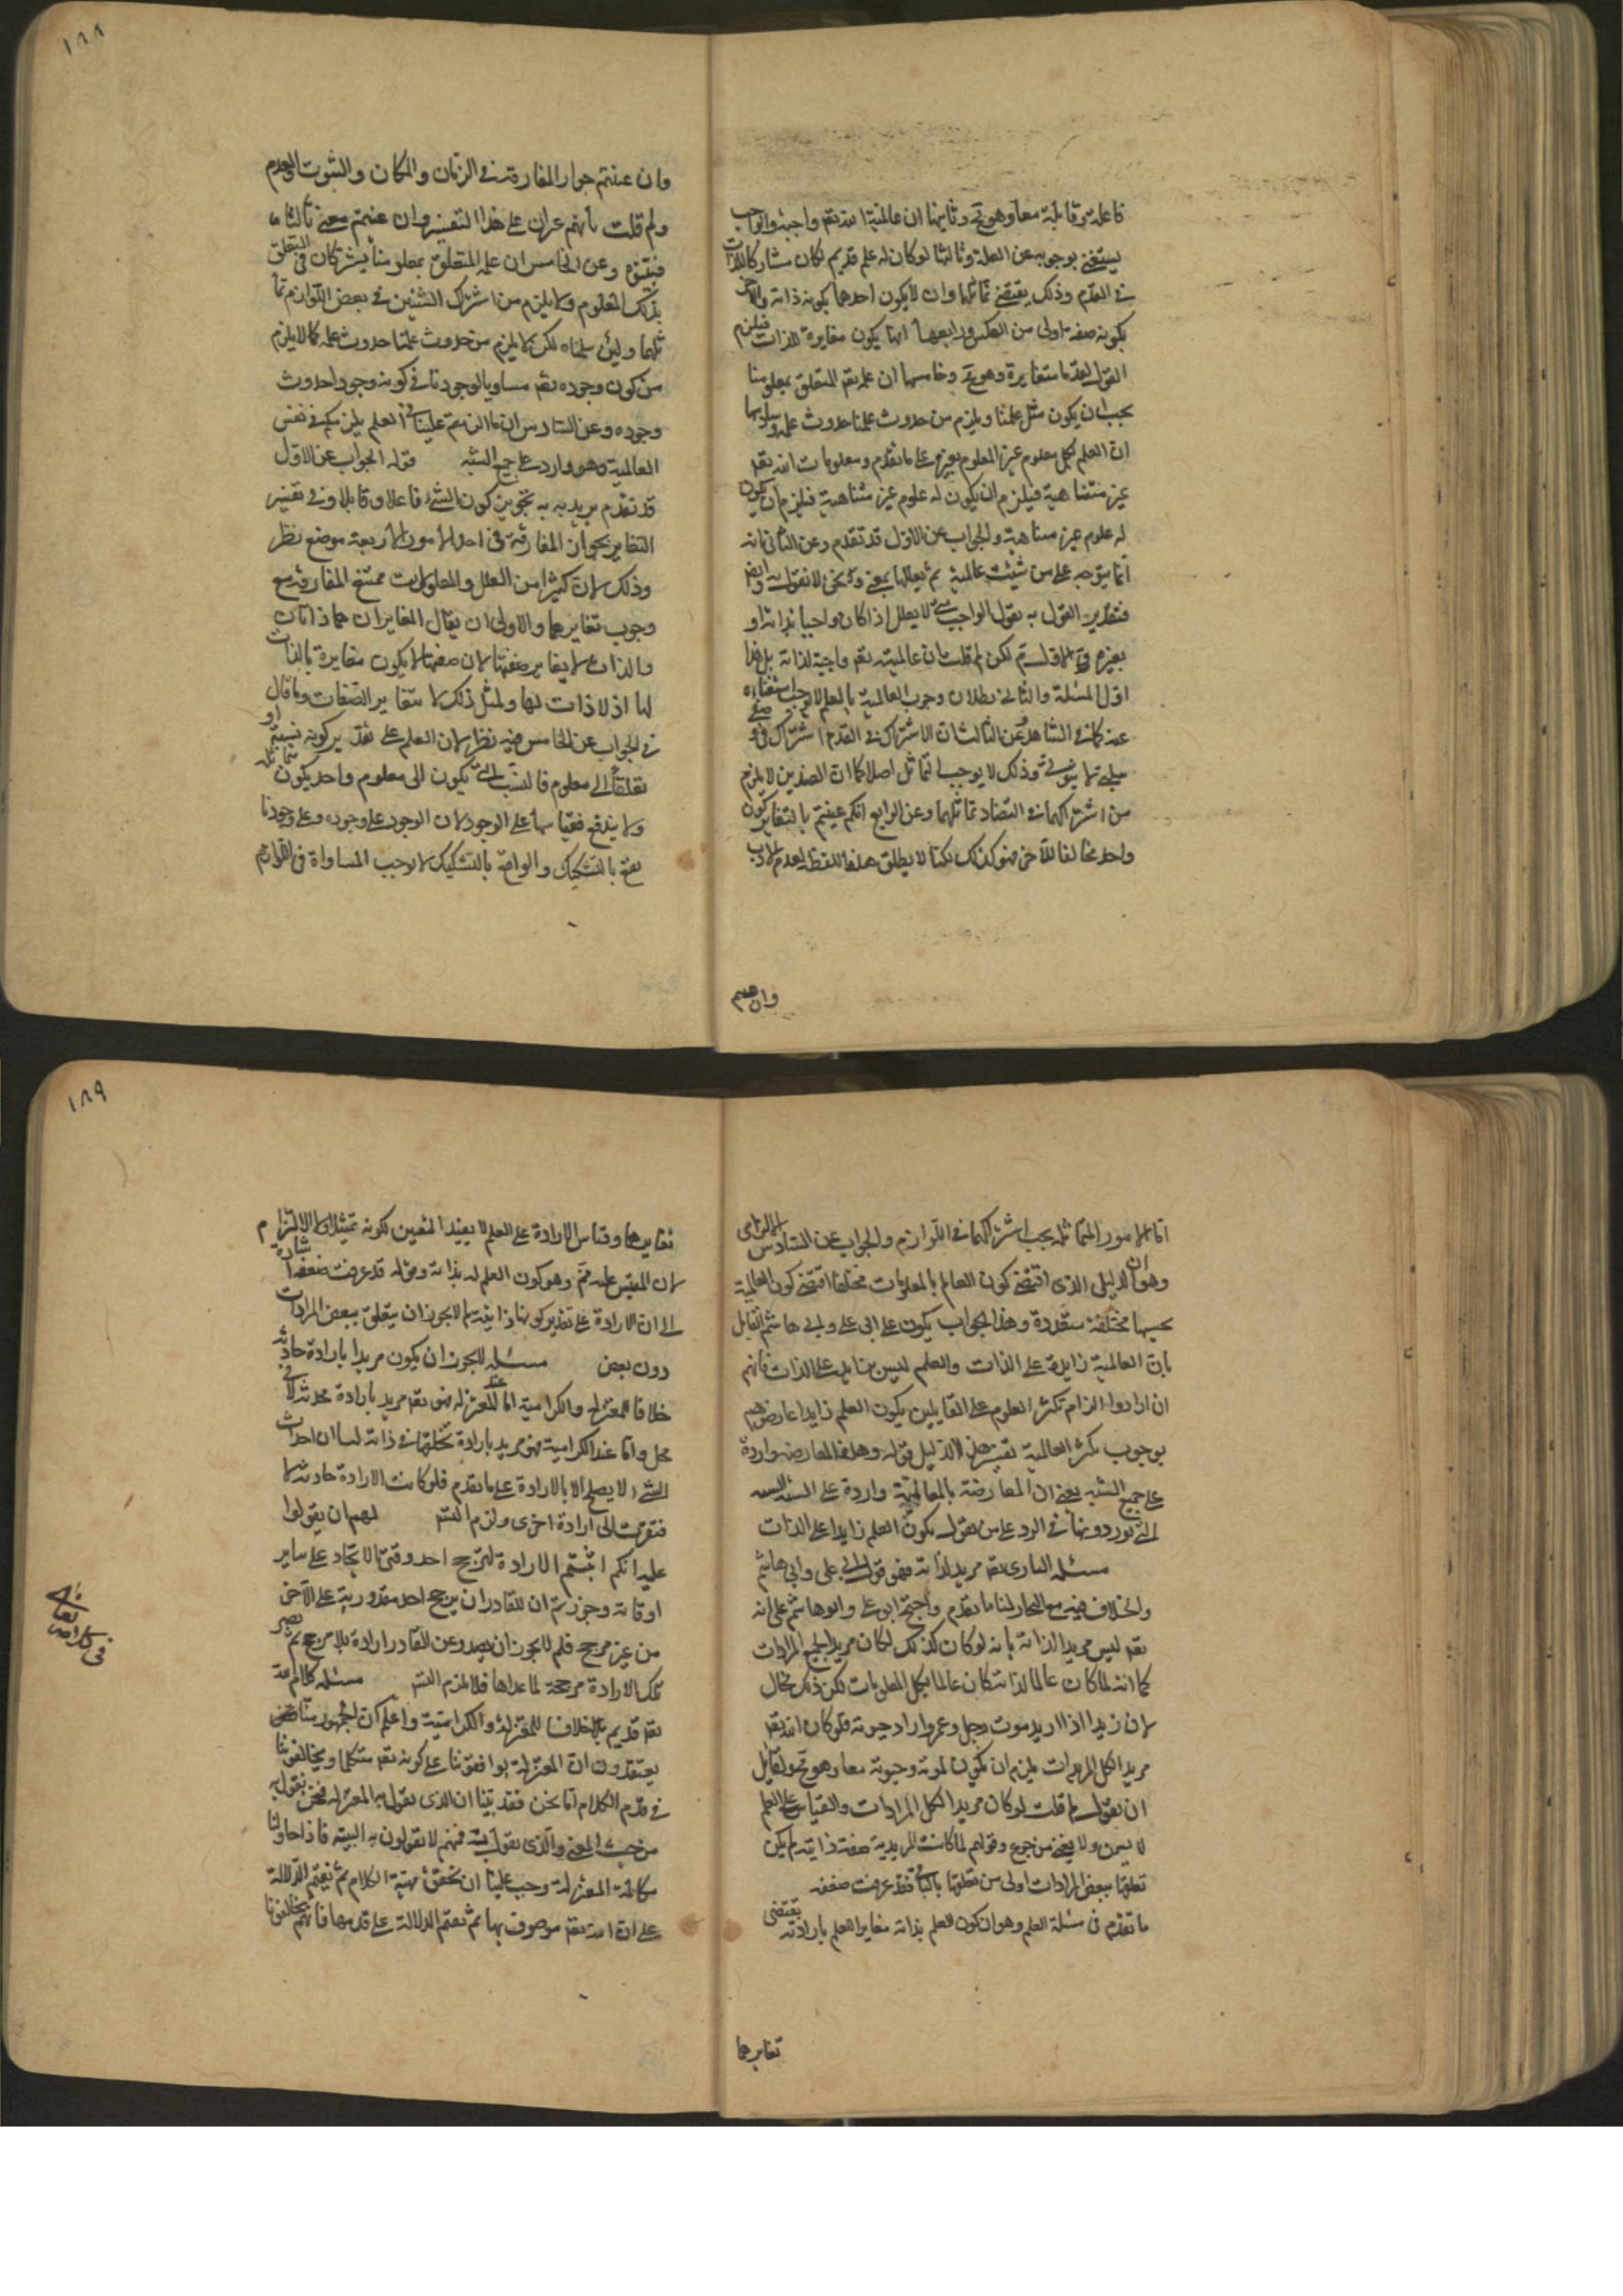 فاعلة وقابلة معا وهو مح وثانيها ان عالمية الله تعم واجبة والواجب
يستغنى بوجوبه عن العلة وثالثها لو كان له علم قديم لكان مشاركا للذات
في القدم وذلك يقتضى تماثلهما وان لا يكون احدهما بكونه ذاتا والاخر
بكونه صفة اولى من العكس ورابعها انها يكون مغايرة للذات فيلزم
القول بقدماء متغايرة وهو مح وخامسها ان علمه تعم المتعلق بمعلومنا
يجب ان يكون مثل علمنا ويلزم من حدوث علمنا حدوث علمه وسادسها
ان العلم بكل معلوم غير العلم بغيره على ما تقدم ومعلومات الله تعم
غير متناهية فيلزم ان يكون له علوم غير متناهية فيلزم ان يكون
له علوم غير متناهية والجواب عن الاول قد تقدم وعن الثاني انه
انما يتوجه على من يثبت عالمية ثم يعللها بمعنى ونحن لا نقول به وايضا
فبتقدير القول به نقول الواجب متى لا يعلل اذا كان واجبا بذاته او
بغيره الاول مسلم لكن لم قلت بان عالميته تعم واجبة لذاته بل هذا
اول المسئلة والثاني بطلان وجوب العالمية بالعلم لا يوجب استغناءه
عنه كما في الشاهد وعن الثالث ان الاشتراك في القدم اشتراك في وصف
سلبي او ثبوتي وذلك لا يوجب التماثل اصلا كما ان الضدين لا يلزم
من اشتراكهما في التضاد تماثلهما وعن الرابع انكم عنيتم بالتغاير كون
واحد مخالفا للاخر فهو كذلك لكنا لا يطلق هذا اللفظ لعدم الاذن
وان عنيتم
١٨٨
وان عنيتم جواز المفارقة في الزمان والمكان والثبوت والعدم
ولم قلت بانهم غيران على هذا التفسير وان عنيتم معنى ثالثا
فبينوه وعن الخامس ان علمه المتعلق بمعلومنا يشتركان في التعلق
بذلك المعلوم ولا يلزم من اشتراك الشيئين في بعض اللوازم تما
ثلهما ولئن سلمناه لكن لا يلزم من حدوث علمنا حدوث علمه كما لا يلزم
من كون وجوده تعم مساويا لوجودنا في كونه وجودا حدوث
وجوده وعن السادس ان ما الزمتم علينا في العلم يلزمكم في نفس
العالمية وهو وارد على جميع الشبه قوله الجواب عن الاول
قد تقدم يريد به تجويز كون الشيء فاعلا وقابلا وفي تفسير
التغاير بجواز المفارقة في احد الامور الاربعة موضع نظر
وذلك لان كثيرا من العلل والمعلولات ممتنع المفارقة مع
وجوب تغايرهما والاولى ان يقال المغايران هما ذاتان
والذات لا يغاير صفتها لان صفتها لا يكون مغايرة بالذات
لها اذ لا ذات لها ولمثل ذلك لا متغاير الصفات وما قال
في الجواب عن الخامس فيه نظر لان العلم على تقدير كونه نسبة او
تعلقا الى معلوم فالنسب التي يكون الى معلوم واحد يكون متماثلة
ولا يندفع بقياسها على الوجود لان الوجود على وجوده وعلى وجودنا
يقع بالتشكيك والواقع بالتشكيك لا يوجب المساواة في اللوازم
اما الامور المتماثلة يجب اشتراكها في اللوازم والجواب عن السادس الزامي
وهو ان الدليل الذي اقتضى كون العالم بالمعلومات مختلفا اقتضى كون العالمية
بحسبها مختلفة متعددة وهذا الجواب يكون على ابي علي وابي هاشم القائل
بان العالمية زايدة على الذات والعلم ليس بزايد على الذات فانهم
ان ارادوا الزام تكثر العلوم على القايلين بكون العلم زايدا عارضهم
بوجوب تكثر العالمية بعين هذا الدليل قوله وهذه المعارضة واردة
على جميع الشبه يعنى ان المعارضة بالعالمية واردة على الشبه الستة
التي يوردونها في الرد على من يقول بكون العلم زايدا على الذات
مسئلة الباري تعم مريد لذاته فهو قول ابي علي وابي هاشم
والخلاف فيه مع النجار لنا ما تقدم واحتج ابو علي وابو هاشم على انه
تعم ليس مريدا لذاته بانه لو كان كذلك لكان مريدا لجميع المرادات
كما انه لما كان عالما لذاته كان عالما بكل المعلومات لكن ذلك محال
لان زيدا اذا اريد موت رجل وعمرو اراد حيوته فلو كان الله تعم
مريدا لكل المرادات يلزم ان يكون لموته وحيوته معا وهو مح ولقايل
ان يقول لم قلت لو كان مريدا لكل المرادات والقياس على العلم
لا يسمن ولا يغنى من جوع وقولهم لما كانت المريدية صفة ذاتية لم يكن
تعلقها ببعض المرادات اولى من تعلقها بالباقي فقد عرفت ضعفه
ما تقدم في مسئلة العلم وهو ان كون العلم بذاته مغايرا للعلم بارادته يقتضى
تغايرهما
١٨٩
تغايرهما وقياس الارادة على العلم لا يفيد اليقين لكونه تمثيلا ولا الالزام
لان المقيس عليه مم وهو كون العلم له بذاته وقوله قد عرفت ضعفه اشارة
الى ان الارادة على تقدير كونها ذاتية لم لا يجوز ان يتعلق ببعض المرادات
دون بعض مسئلة لا يجوز ان يكون مريدا بارادة حادثة
خلافا للمعتزلة والكرامية اما عند المعتزلة فهو تعم مريد بارادة محدثة لا في
محل واما عند الكرامية فهو مريد بارادة تخلقها في ذاته لنا ان احداث
الشيء لا يصلح الا بالارادة على ما تقدم فلو كانت الارادة حادثة لا
فتقرت الى ارادة اخرى ولزم التسلسل لهم ان يقولوا
عليه انكم اثبتم الارادة لترجيح احد وقتي الايجاد على ساير
اوقاته وجوزتم ان للقادر ان يرجح احد مقدوريه على الاخر
من غير مرجح فلم لا يجوز ان يصدر عن القادر ارادة بلا مرجح ثم يصير
تلك الارادة مرجحة لما عداها فلا يلزم التسلسل مسئلة كلام الله
تعم قديم خلافا للمعتزلة والكرامية واعلم ان الجمهور منا
يعتقدون ان المعتزلة يوافقوننا على كونه تعم متكلما ويخالفوننا
في قدم الكلام اما نحن فقد بينا ان الذي يقول به المعتزلة فنحن نقول به
من حيث المعنى والذي نقول به فهم لا يقولون به البتة فاذا حاولنا
مكالمة المعتزلة وجب علينا ان نحقق مهية الكلام ثم نقيم الدلالة
على ان الله تعم موصوف بها ثم نقيم الدلالة على قدمها فانهم يخالفوننا
في كلام الله تعالى